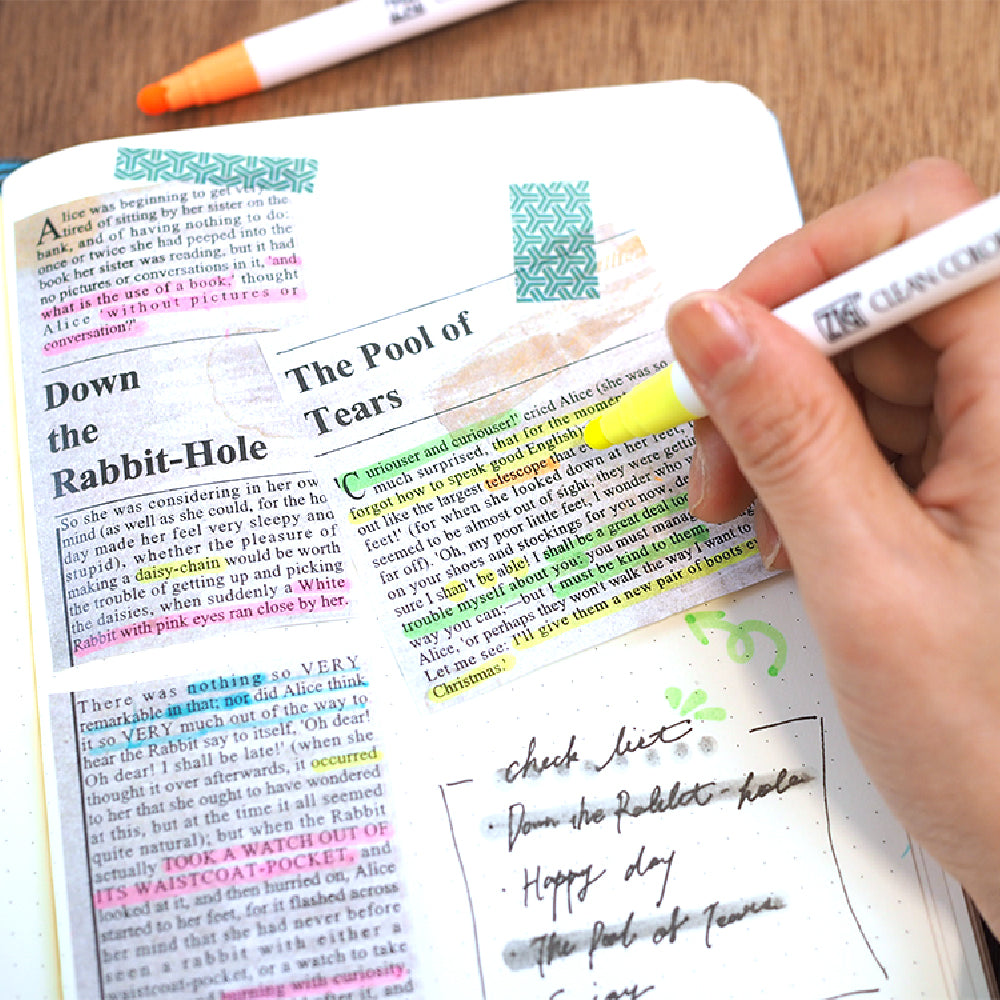 Alice was beginning to get very
tired of sitting by her sister on the
bank, and of having nothing to do:
once or twice she had peeped into the
book her sister was reading, but it had
no pictures or conversations in it, 'and
what is the use of a book,' thought
Alice 'without pictures or
conversation?'
Down
the
Rabbit-Hole
So she was considering in her ow
mind (as well as she could, for the ho
day made her feel very sleepy and
stupid), whether the pleasure of
making a daisy-chain would be worth
the trouble of getting up and picking
the daisies, when suddenly a White
Rabbit with pink eyes ran close by her.
There was nothing so VERY
remarkable in that; nor did Alice think
it so VERY much out of the way to
hear the Rabbit say to itself, 'Oh dear!
Oh dear! I shall be late!' (when she
thought it over afterwards, it occurred
to her that she ought to have wondered
at this, but at the time it all seemed
quite natural); but when the Rabbit
actually TOOK A WATCH OUT OF
ITS WAISTCOAT-POCKET, and
looked at it, and then hurried on, Alice
started to her feet, for it flashed across
her mind that she had never before
seen a rabbit with either a
waistcoat-pocket, or a watch to take
burning with curiosity,
after it, and
The Pool of
Tears
'Curiouser and curiouser!' cried Alice (she was so
much surprised, that for the moment
forgot how to speak good English)
out like the largest telescope that e
feet!' (for when she looked down at her feet,
seemed to be almost out of sight, they were getting
far off). 'Oh, my poor little feet, I wonder who
on your shoes and stockings for you now, de
sure I shan't be able! I shall be a great deal too
trouble myself about you: you must manag
way you can;—but I must be kind to them,'
Alice, 'or perhaps they won't walk the way I want to
Let me see: I'll give them a new pair of boots e
Christmas.'
check list
· Down the Rabbit-hole
· Happy day
· The Pool of Tears
Enjoy
ZIG CLEAN COLOR